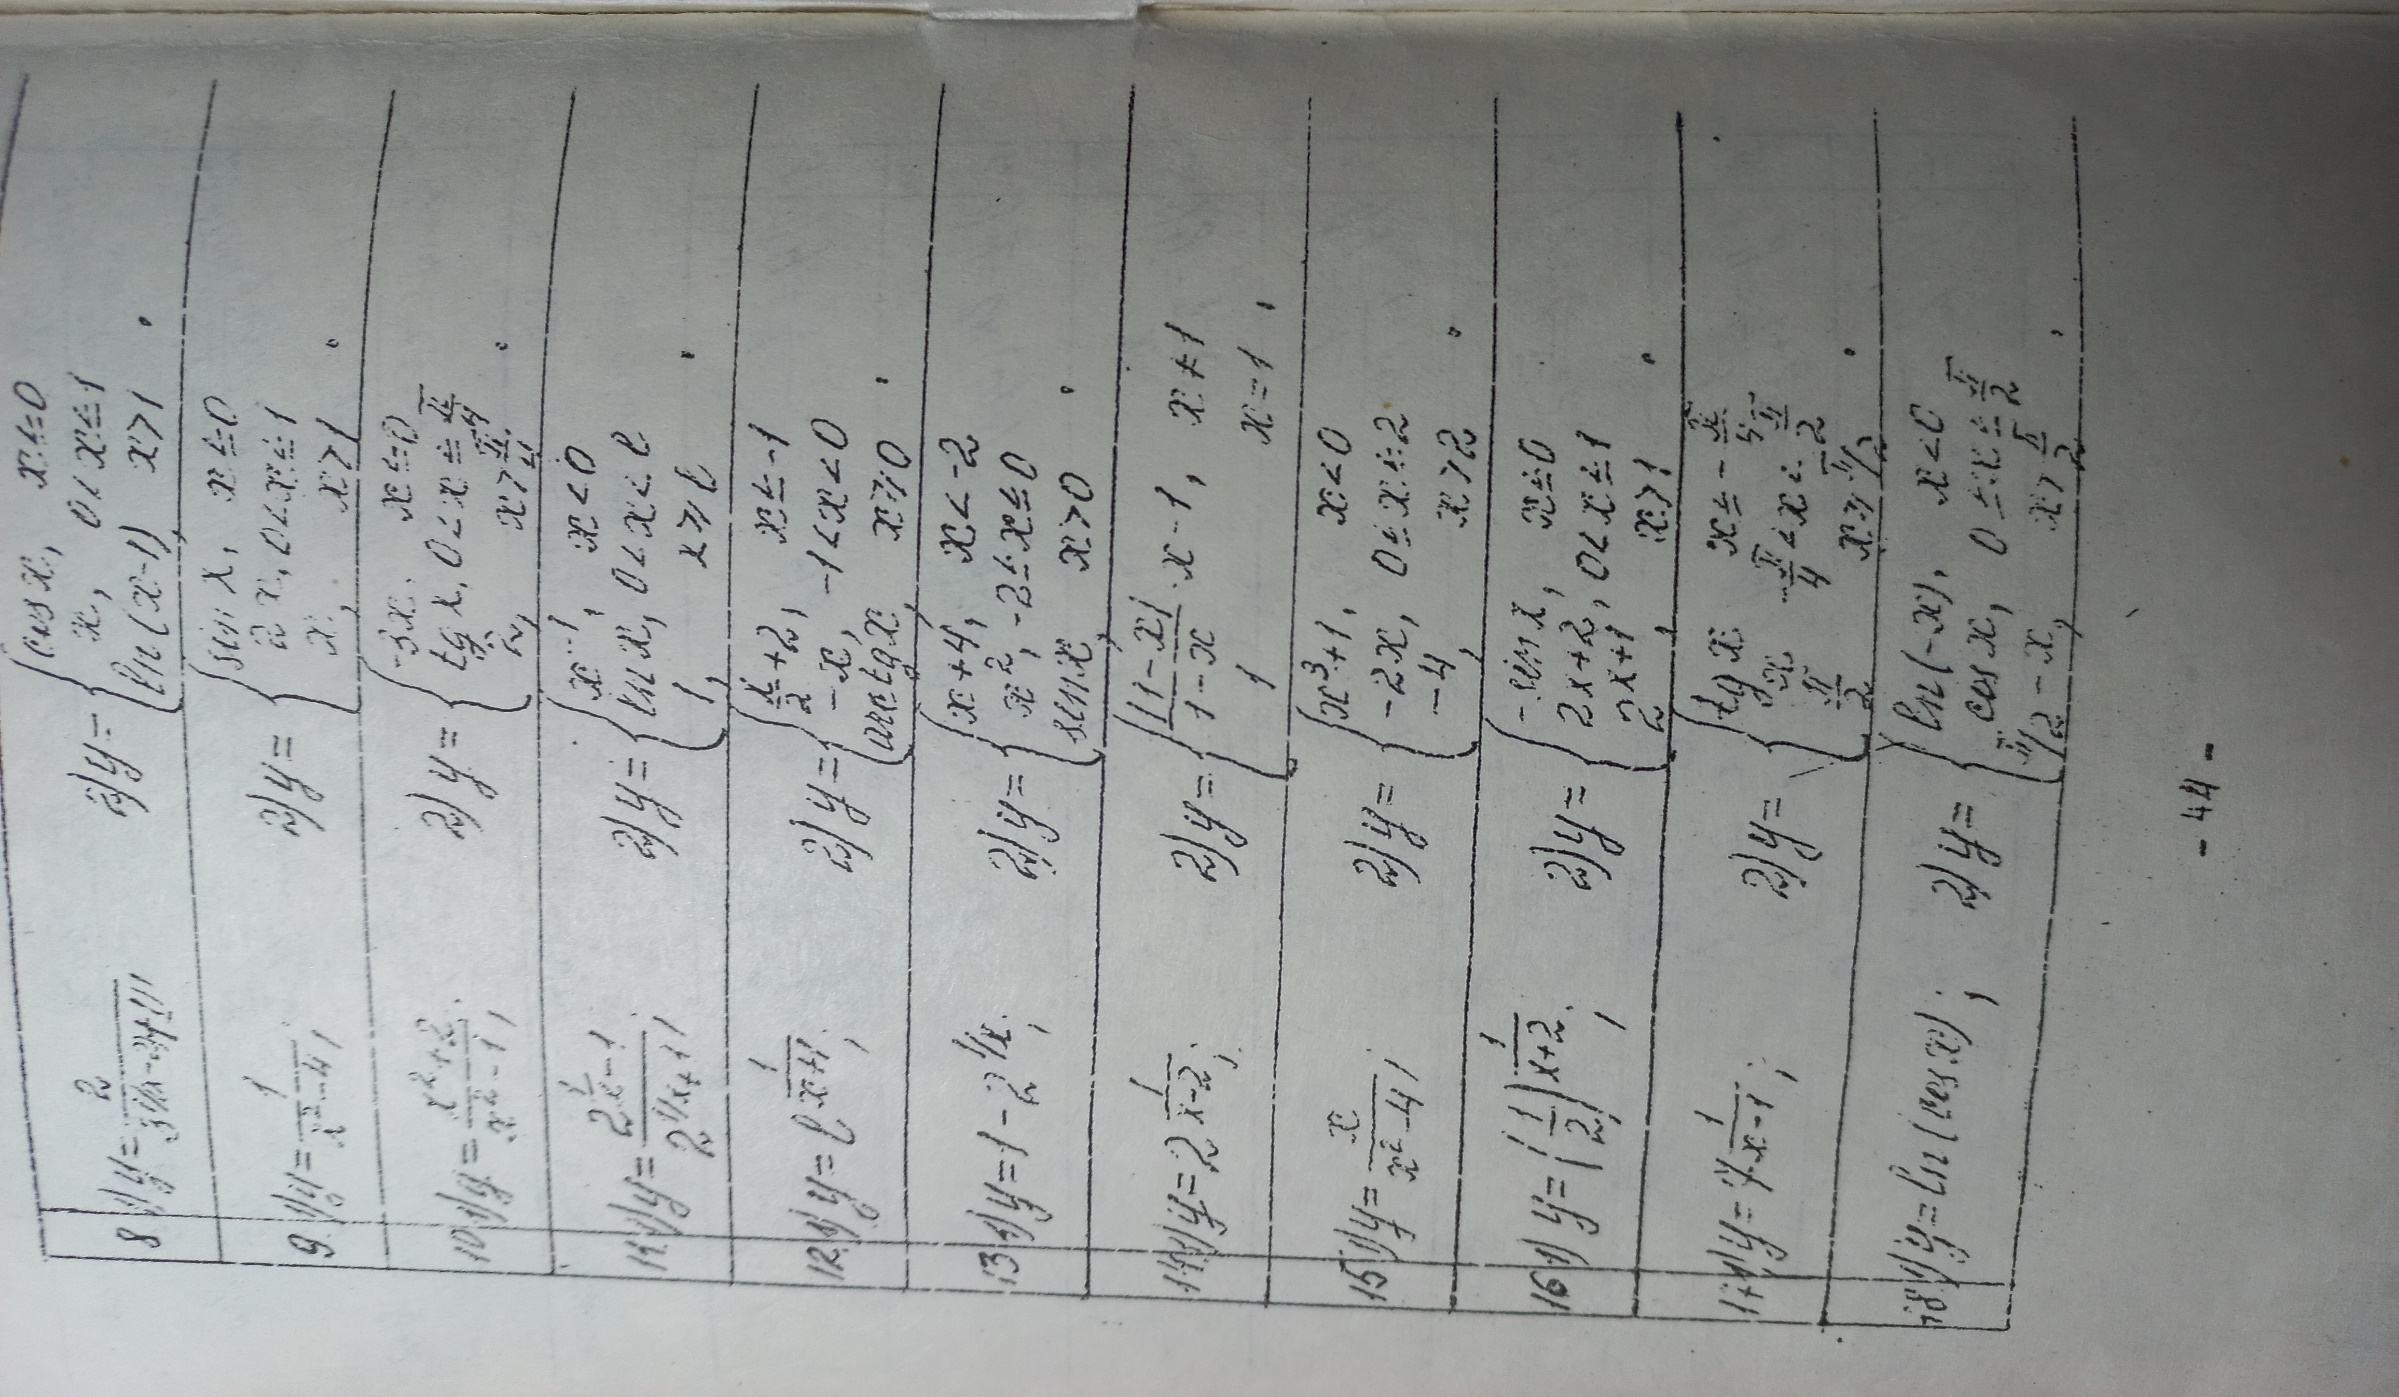 8 1) y = 2/(3^(1/x-2)+1); 2) y = { cos x, x ≤ 0
x, 0 < x ≤ 1
ln(x-1), x > 1.
9 1) y = 1/(x²-4); 2) y = { sin x, x ≤ 0
2x, 0 < x ≤ 1
x, x > 1.
10 1) y = (x²+2)/(x²-1); 2) y = { -3x, x ≤ 0
tg x, 0 < x ≤ π/4
2, x > π/4.
11 1) y = (2^(1/x)-1)/(2^(1/x)+1); 2) y = { x-1, x < 0
ln x, 0 < x < e
1, x ≥ e.
12 1) y = e^(1/(x+1)); 2) y = { x/2+2, x ≤ -1
-x, -1 < x < 0
arctg x, x ≥ 0.
13 1) y = 1-2^(1/x); 2) y = { x+4, x < -2
x², -2 ≤ x ≤ 0
sin x, x > 0.
14 1) y = 2^(1/(x-2)); 2) y = { |1-x|/(1-x) · x-1, x ≠ 1
1 x = 1,
15 1) y = x/(x²-4); 2) y = { x³+1, x < 0
-2x, 0 ≤ x ≤ 2
-4, x > 2.
16 1) y = (1/2)^(1/(x+2)); 2) y = { -sin x, x ≤ 0
2x+2, 0 < x ≤ 1
2x+1, x > 1.
17 1) y = 7^(1/(x-1)); 2) y = { tg x x ≤ -π/4
x -π/4 < x < π/2
π/2 x ≥ π/2.
18 1) y = ln(cos x); 2) y = { ln(-x), x < 0
cos x, 0 ≤ x ≤ π/2
π/2 - x, x > π/2.
- 44 -